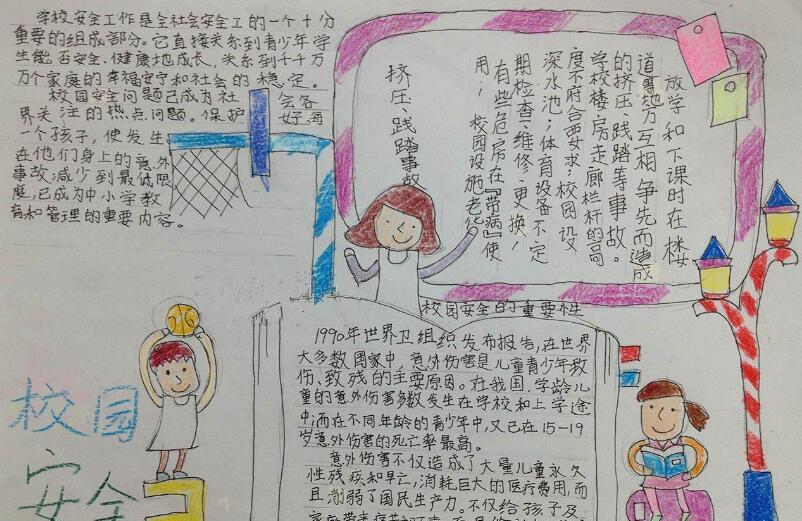 学校安全工作是全社会安全工的一个十分
重要的组成部分。它直接关系到青少年学
生能否安全、健康地成长,关系到千千万
万个家庭的幸福安宁和社会的稳定。
校园安全问题已成为社会各
界关注的热点问题。保护好每
一个孩子,使发生
在他们身上的意外
事故减少到最低限
度,已成为中小学教
育和管理的重要内容。
挤压、践踏事故
放学和下课时在楼
道等地方互相争先而造成
的挤压、践踏等事故。
学校楼房走廊栏杆的高
度不符合要求;校园设
深水池;体育设备不定
期检查、维修、更换;
有些危房在『带病』使
用;校园设施老化
校园安全的重要性
1990年世界卫组织发布报告,在世界
大多数国家中,意外伤害是儿童青少年致
伤、致残的主要原因。在我国,学龄儿
童的意外伤害多数发生在学校和上学途
中;而在不同年龄的青少年中,又已在15-19
岁意外伤害的死亡率最高。
意外伤害不仅造成了大量儿童永久
性残疾和早亡,消耗巨大的医疗费用,而
且削弱了国民生产力。不仅给孩子及
校园
安全